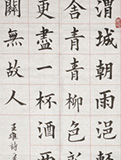 渭城朝雨浥
舍青青柳
更盡一杯酒
關無故人
王維詩